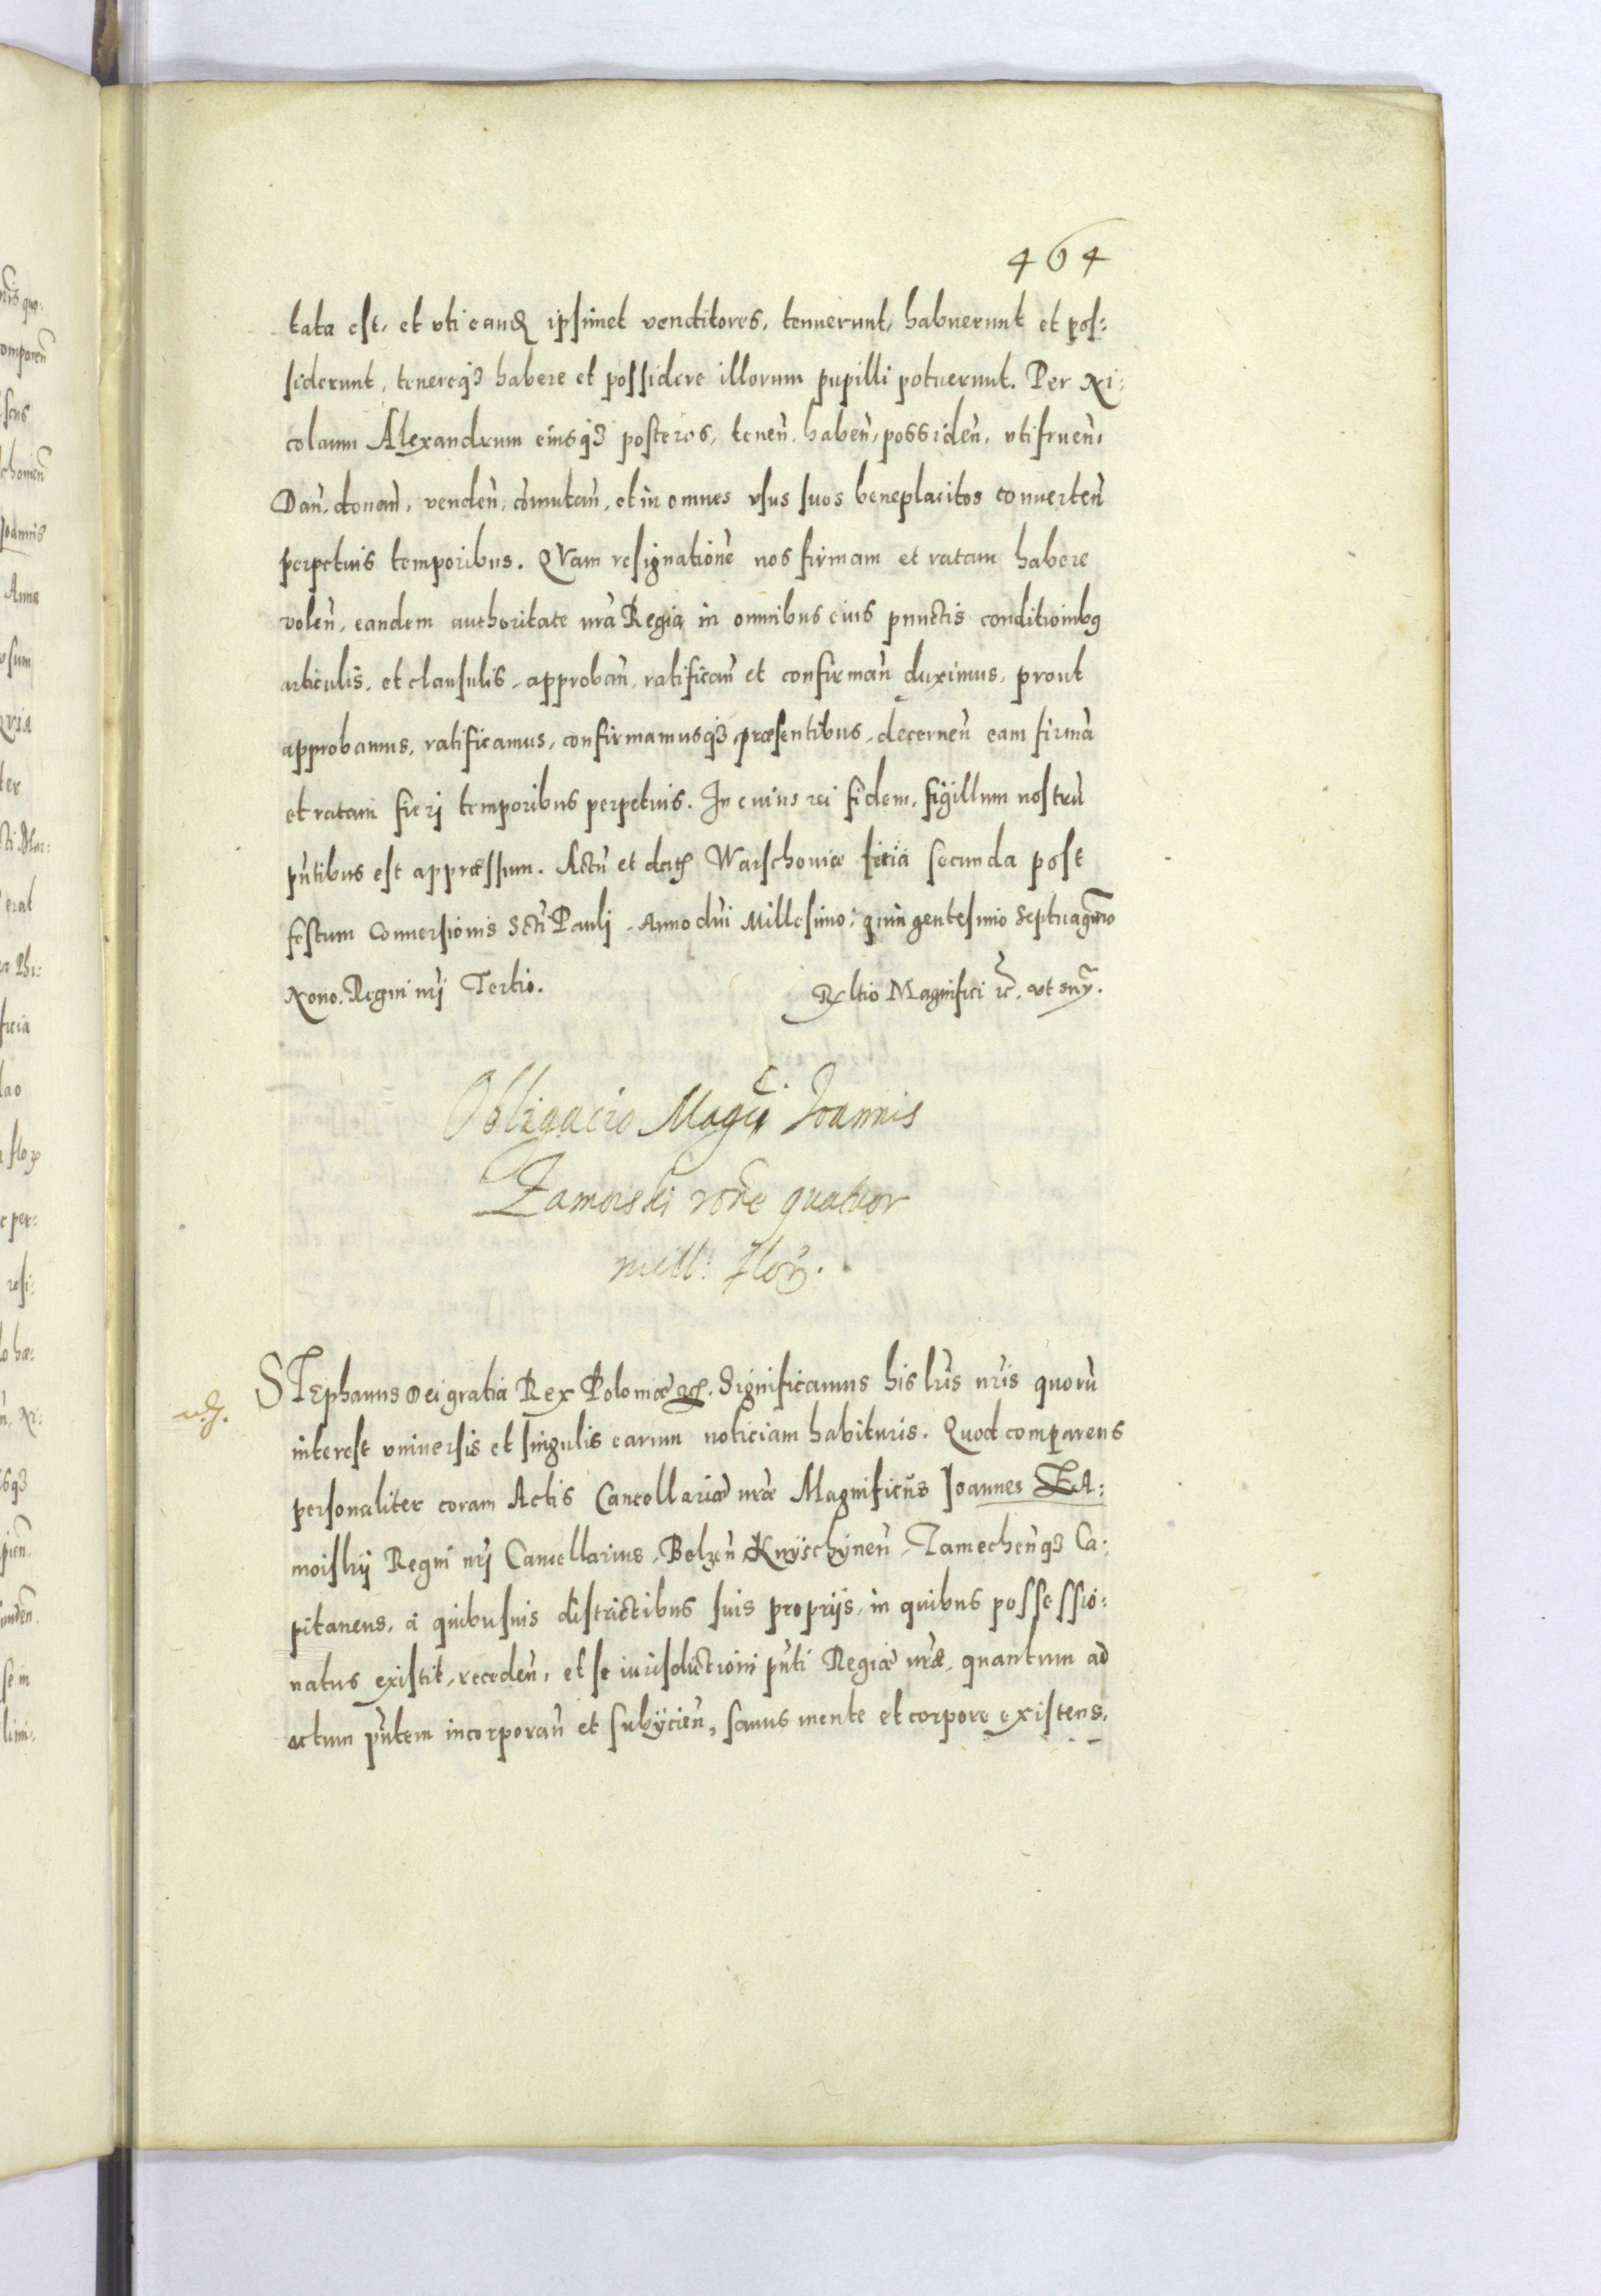 464
tata est, et vti eand ipsimet venditores, tenuerunt, habuerunt et pos:
siderunt, tenereq3 habere et possidere illorum pupilli potuerunt. Per Ni:
colaum Alexandrum eiusq3 posteros, tenen̄, haben̄, possiden̄, vtifruen̄,
Dan̄, donan̄, venden̄, com̄utan̄, et in omnes vsus suos beneplacitos conuerten̄
perpetuis temporibus. QVam resignationē nos firmam et ratam habere
volen̄, eandem authoritate nrā Regia in omnibus eius punctis conditionibꝯ
articulis, et clausulis, approban̄, ratifican̄ et confirman̄ duximus, prout
approbamus, ratificamus, confirmamusq3 præsentibus, decernen̄ eam firmā
et ratam fieri temporibus perpetuis. In cuius rei fidem, sigillum nostrū
pn̄tibus est appræssum. Actū et dat Warschouiæ feria secunda post
festum Conuersionis Scti Pauli, Anno dn̄i Millesimo: quingentesimo Septuagmo
Nono. Regni nrj Tertio. Rltio Magnifici ꝛc. vt s.
Obligacio Magci Joannis
Zamoiski rōne quatuor
mill: flor.
STephanus Dei gratia Rex Poloniæ ꝛc. Significamus his lrīs nrīs quorū
interest vniuersis et singulis earum noticiam habituris. Quod comparens
personaliter coram Actis Cancellariæ nræ Magnificus Joannes ZA:
moiskij Regni nrj Cancellarius, Belzen̄ Knyschÿnen̄, Zamechen̄q3 Ca:
pitaneus, à quibusuis districtibus suis proprijs, in quibus possessio:
natus existit, receden̄, et se iurisdictioni pn̄ti Regiæ nræ, quantum ad
actum pn̄tem incorporan̄ et subijcien̄, sanus mente et corpore existens,